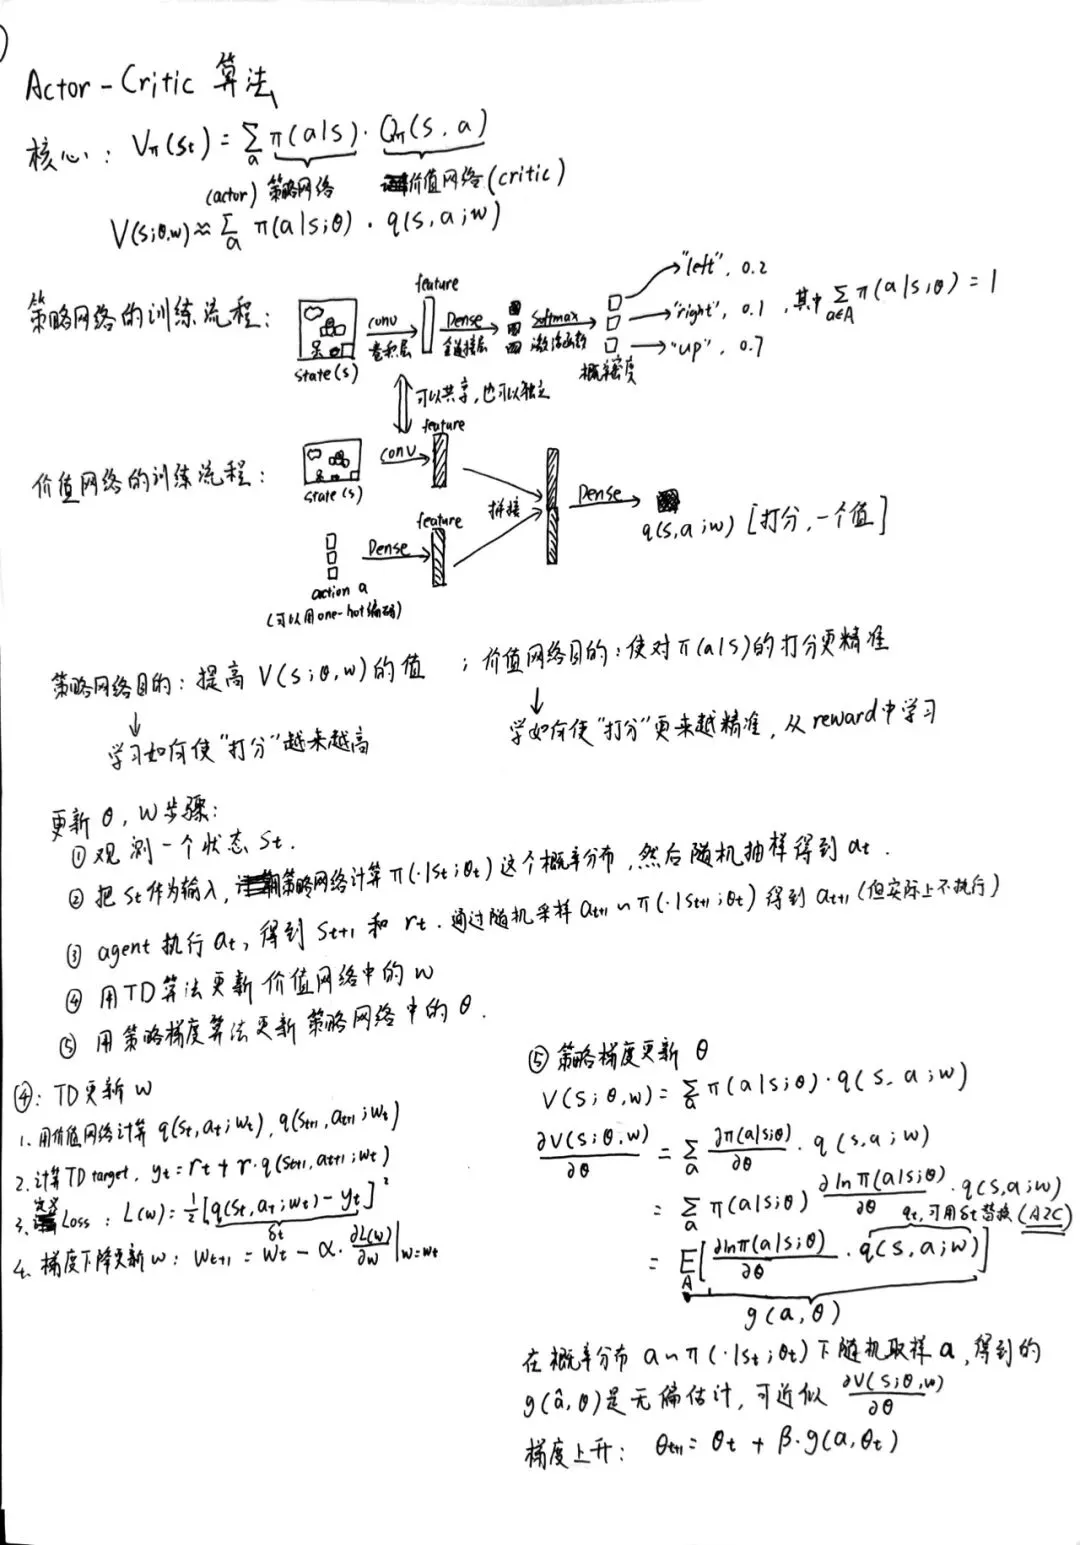 Actor-Critic 算法
核心: Vπ(St) = Σa π(a|s)· Qπ(s, a)
(actor) 策略网络 价值网络 (critic)
V(s;θ,w) ≈ Σa π(a|s;θ) · q(s, a; w)
策略网络的训练流程:
state(s)
conv
卷积层
feature
Dense
全连接层
Softmax
激活函数
概率密度
"left", 0.2
"right", 0.1
"up", 0.7
, 其中 Σa∈A π(a|s;θ) = 1
可以共享, 也可以独立
价值网络的训练流程:
state(s)
conv
feature
action a
(可以用one-hot编码)
Dense
feature
拼接
Dense
q(s,a;w) [打分, 一个值]
策略网络目的: 提高 V(s;θ,w) 的值 ; 价值网络目的: 使对π(a|s)的打分更精准
↓ 学习如何使"打分"越来越高
↓ 学如何使"打分"更来越精准, 从reward中学习
更新 θ, w 步骤:
① 观测一个状态 St.
② 把 St 作为输入, 策略网络计算 π(·|St;θt) 这个概率分布, 然后随机抽样得到 at.
③ agent 执行 at, 得到 St+1 和 rt. 通过随机采样 at+1 ∽ π(·|St+1;θt) 得到 at+1 (但实际上不执行)
④ 用TD算法更新价值网络中的w
⑤ 用策略梯度算法更新策略网络中的θ.
④: TD更新 w
1. 用价值网络计算 q(St,at;wt), q(St+1,at+1;wt)
2. 计算TD target, yt = rt + r·q(St+1,at+1;wt)
3. 定义 Loss: L(w) = 1/2 [q(St,aT;wt) - yt]²
δt
4. 梯度下降更新w: wt+1 = wt - α· ∂L(w)/∂w |w=wt
⑤ 策略梯度更新 θ
V(s;θ,w) = Σa π(a|s;θ)· q(s, a;w)
∂V(s;θ,w)/∂θ = Σa ∂π(a|s;θ)/∂θ · q(s,a;w)
= Σa π(a|s;θ) ∂lnπ(a|s;θ)/∂θ · q(s,a;w)
qt, 可用δt替换 (A2C)
= EA[∂lnπ(a|s;θ)/∂θ · q(s,a;w)]
g(a,θ)
在概率分布 a∽π(·|St;θt) 下随机取样 a, 得到的
g(â,θ)是无偏估计, 可近似 ∂V(s;θ,w)/∂θ
梯度上升: θt+1 = θt + β·g(a,θt)